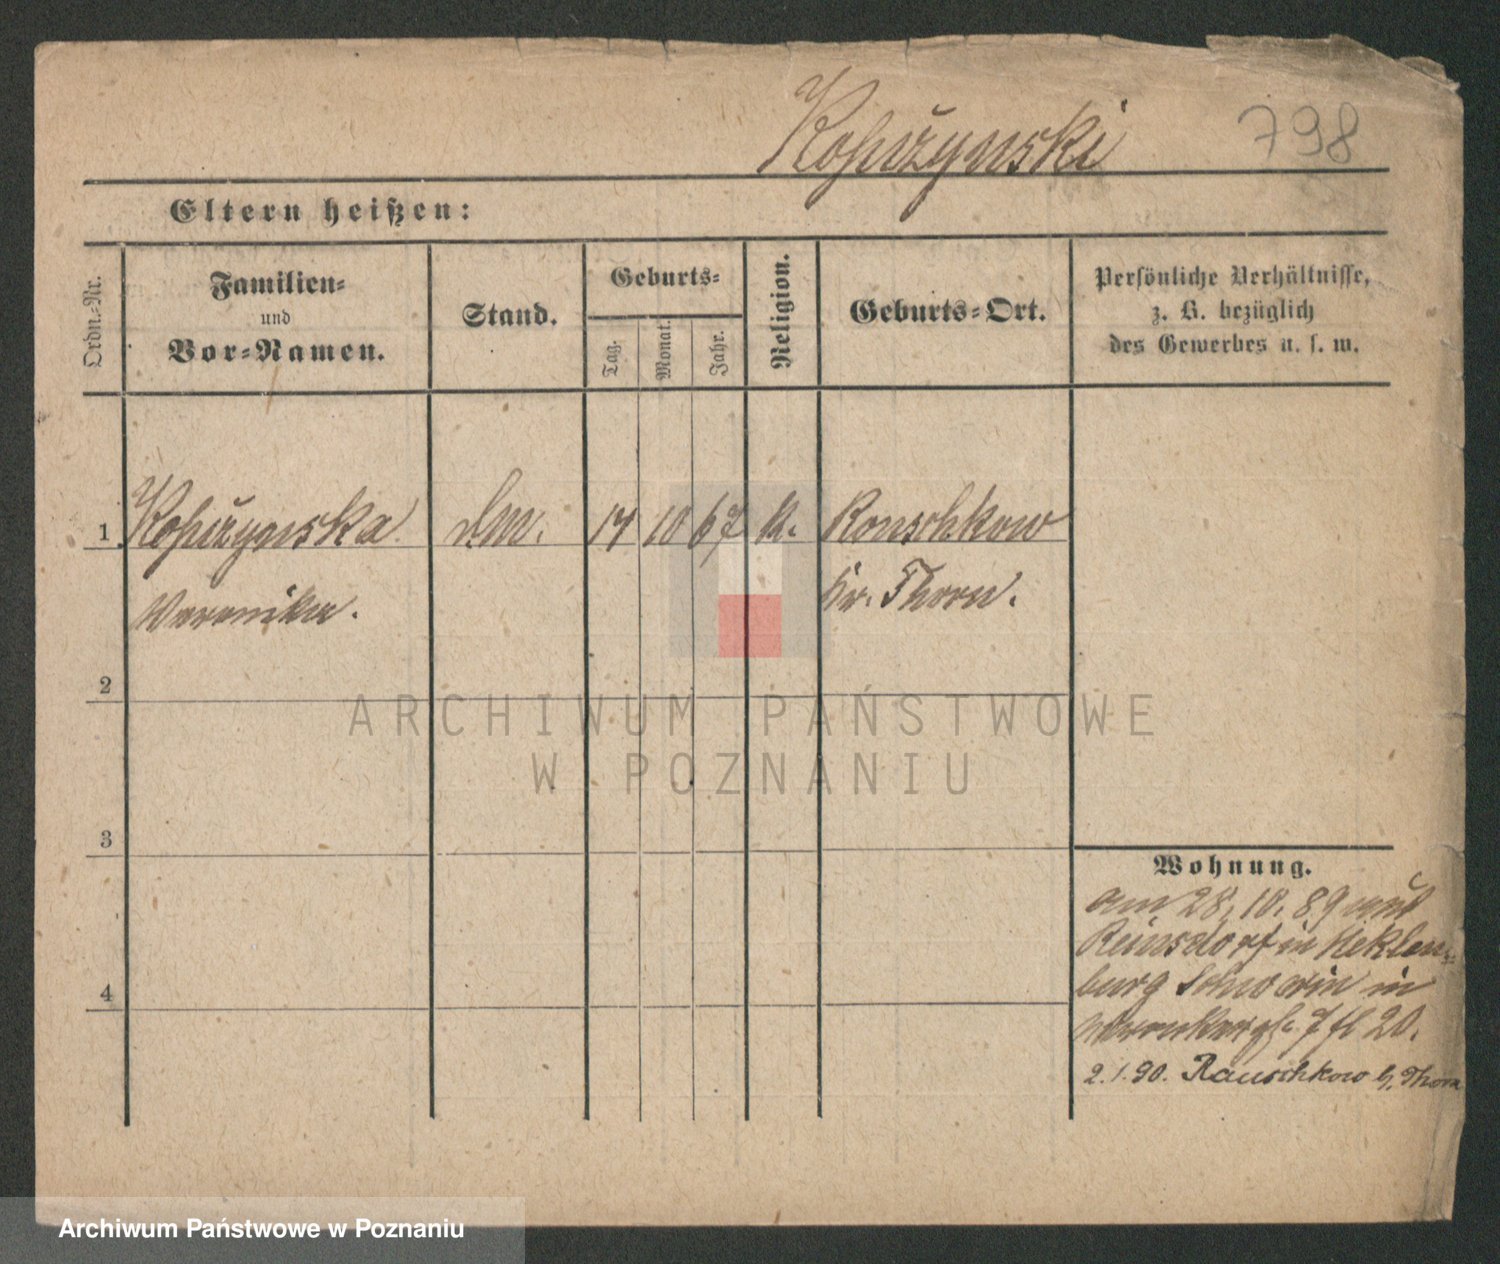 Kopczynski 798
Eltern heißen:
Ordn.-Nr.
Familien-
und
Vor-Namen.
Stand.
Geburts-
Tag.
Monat.
Jahr.
Religion.
Geburts-Ort.
Persönliche Verhältnisse,
z. B. bezüglich
des Gewerbes u. s. w.
1 10 67 k.
Kr. Thorn.
Veronika.
2
ARCHIWUM PAŃSTWOWE
W POZNANIU
3
Wohnung.
am 28. 10. 89
Reinsdorf in Meklen-
burg Schwerin in
4
20.
2. 1. 90. Rauschkow b/ Thorn
Archiwum Państwowe w Poznaniu